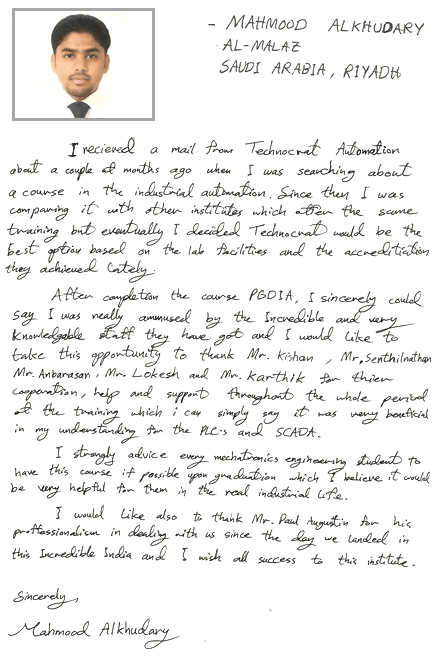 - MAHMOOD ALKHUDARY
AL-MALAZ
SAUDI ARABIA, RIYADH
I recieved a mail from Technocrat Automation
about a couple of months ago when I was searching about
a course in the industrial automation. Since then I was
comparing it with other institutes which offer the same
training but eventually I decided Technocrat would be the
best option based on the lab facilities and the accreditation
they achieved lately.
After completion the course PGDIA, I sincerely could
say I was really ammused by the Incredible and very
knowledgable staff they have got and I would like to
take this opportunity to thank Mr. Kishan, Mr. Senthilnathan
Mr. Anbarasan, Mr. Lokesh and Mr. Karthik for thier
cooperation, help and support throughout the whole period
of the training which i can simply say it was very beneficial
in my understanding for the PLC's and SCADA.
I strongly advice every mechatronics engineering student to
have this course if possible upon graduation which I believe it would
be very helpful for them in the real industrial life.
I would like also to thank Mr. Paul Augustin for his
proffessionalism in dealing with us since the day we landed in
this Incredible India and I wish all success to this institute.
Sincerely,
Mahmood Alkhudary